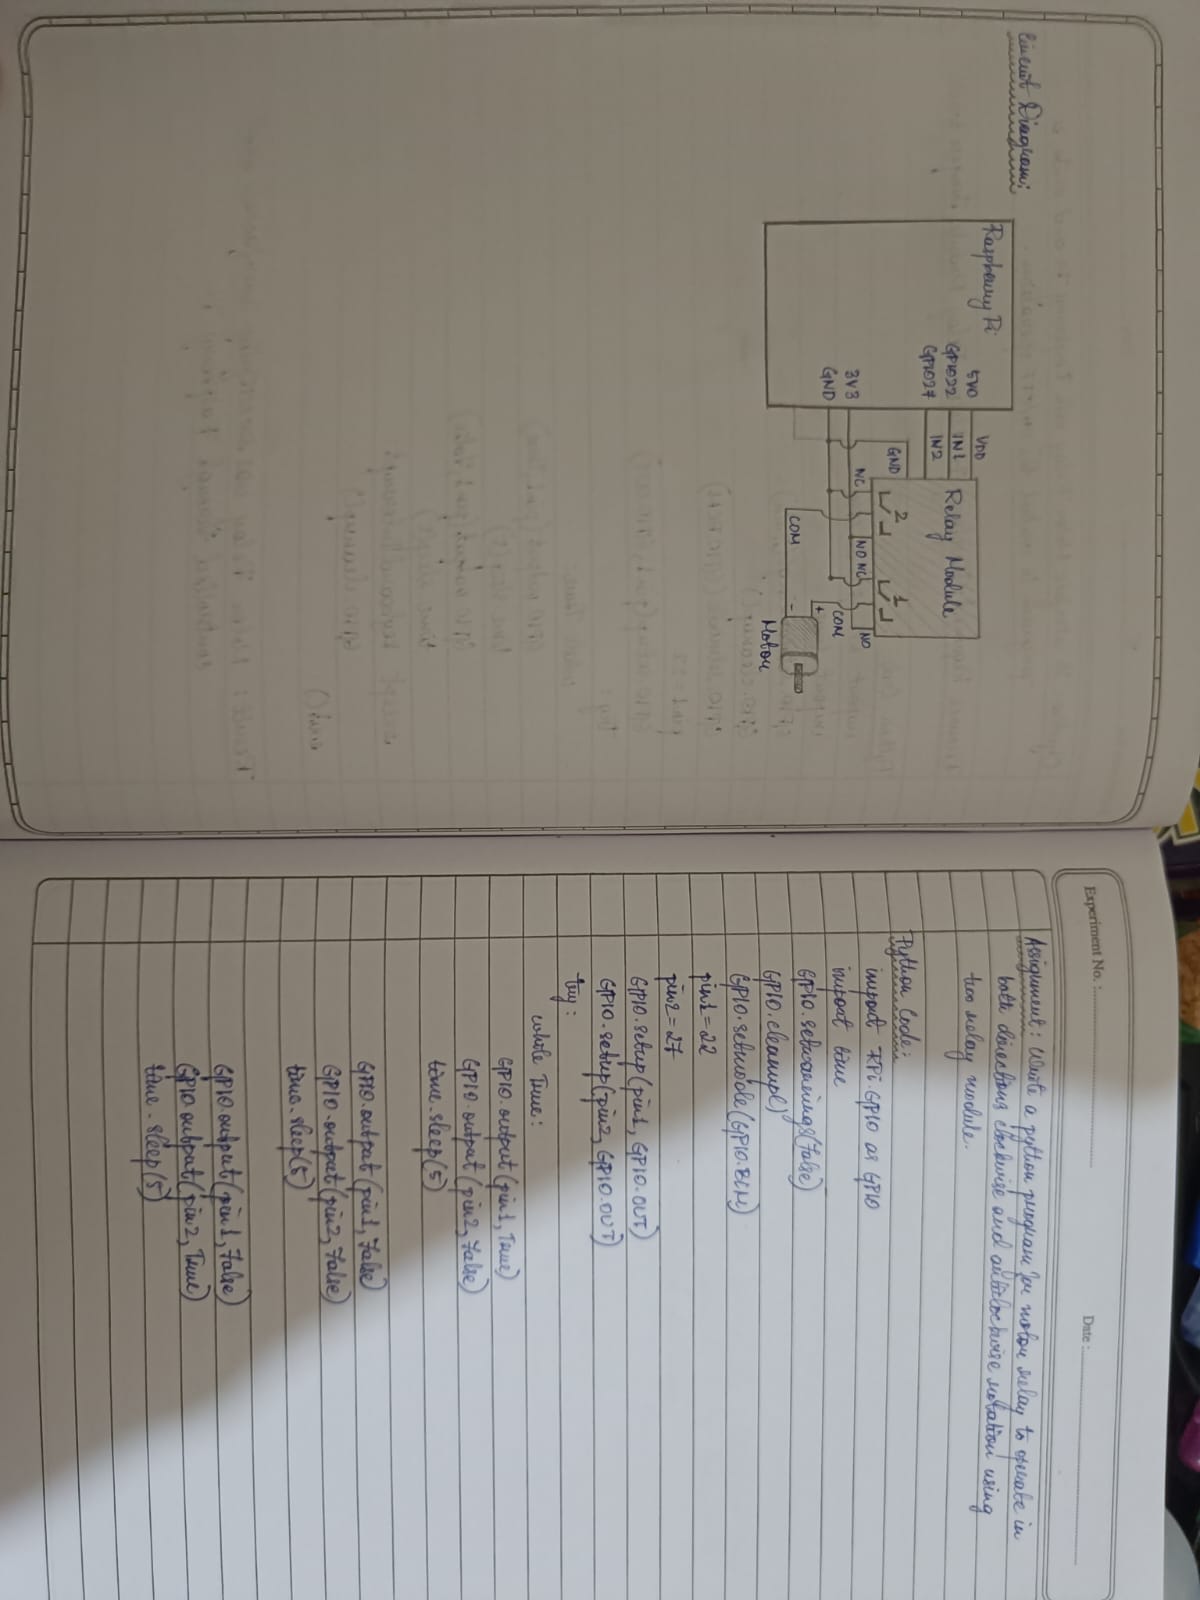 Circuit Diagram:
Raspberry Pi
5V0
GPIO22
GPIO27
3V3
GND
VDD
IN1
IN2
GND
Relay Module
2
1
NC
NO
NC
NO
COM
COM
+
-
Motor
Experiment No. :
Date :
Assignment: Write a python program for motor relay to operate in
both directions clockwise and anticlockwise rotation using
two relay module.
Python Code:
import RPi.GPIO as GPIO
import time
GPIO.setwarnings(False)
GPIO.cleanup()
GPIO.setmode(GPIO.BCM)
pin1 = 22
pin2 = 27
GPIO.setup(pin1, GPIO.OUT)
GPIO.setup(pin2, GPIO.OUT)
try:
while True:
GPIO.output(pin1, True)
GPIO.output(pin2, False)
time.sleep(5)
GPIO.output(pin1, False)
GPIO.output(pin2, False)
time.sleep(5)
GPIO.output(pin1, False)
GPIO.output(pin2, True)
time.sleep(5)